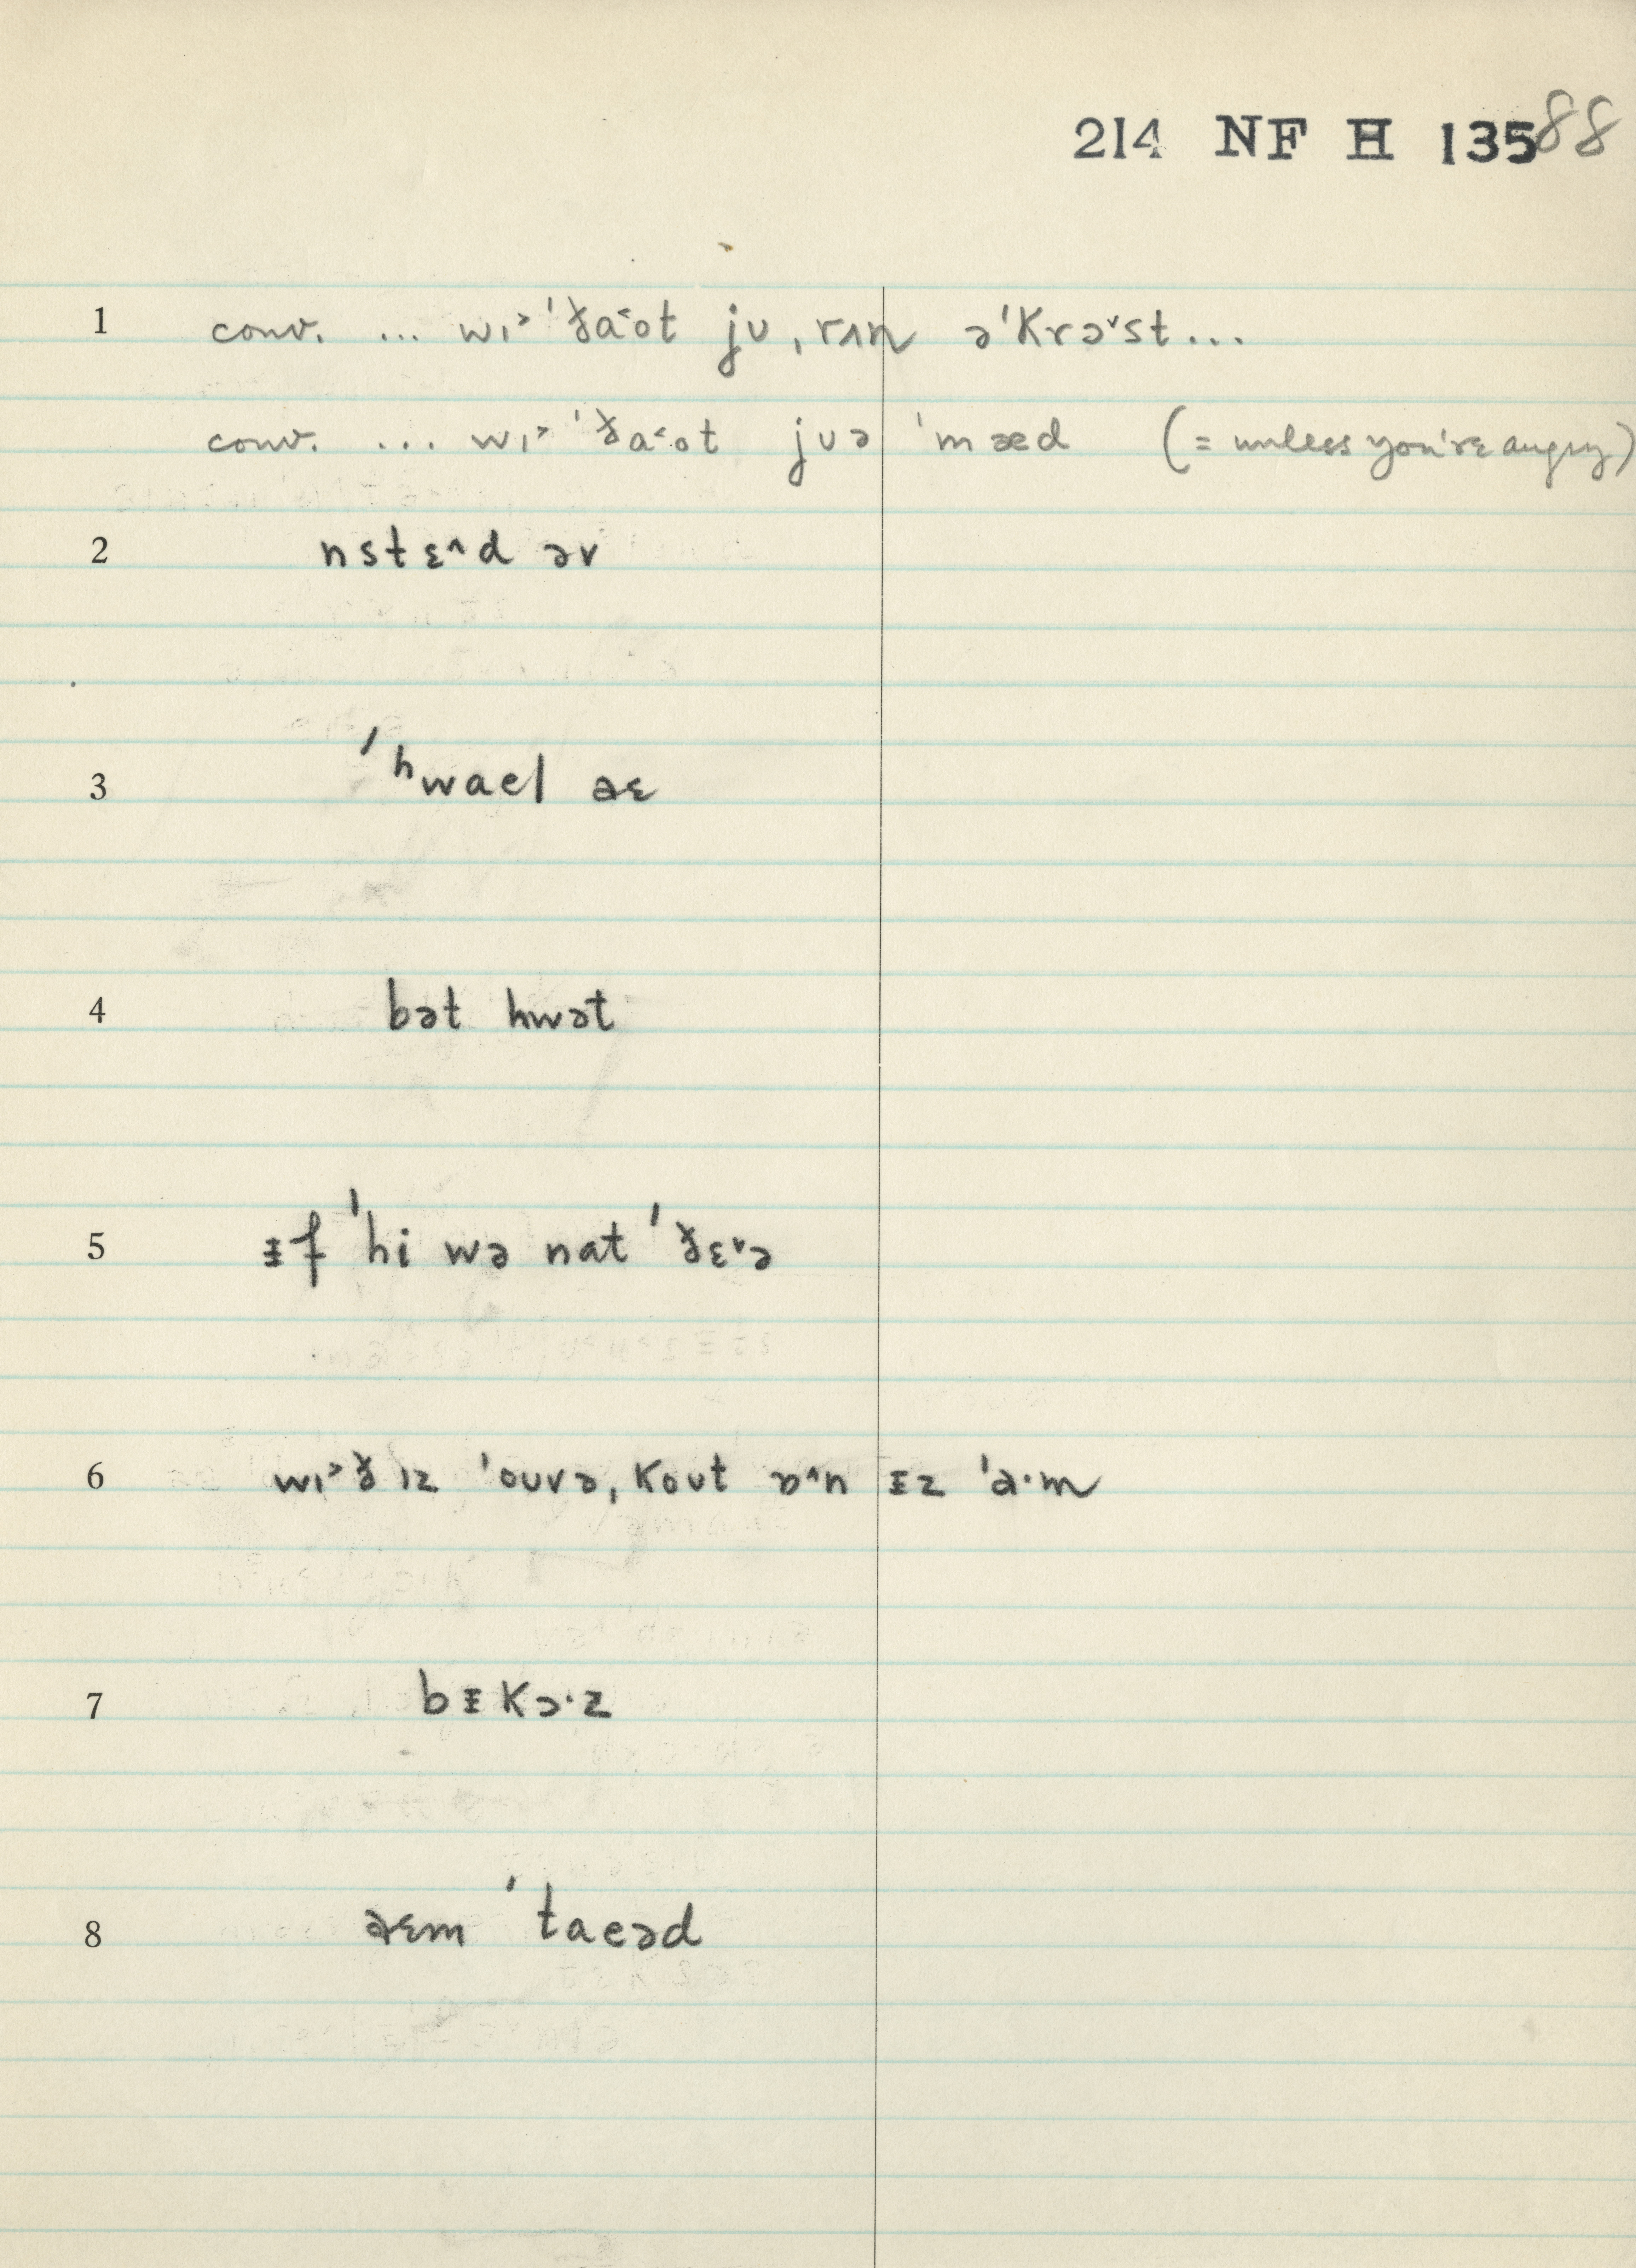 214 NF H 13588
1 conv. ... wɪ˃ˈða˂ot jʊ ˌrʌn əˈkrə˅st...
conv. ... wɪ˃ˈða˂ot jʊə ˈmæd (= unless you're angry)
2 nstɛ˄d əv
3 ˈʰwael əɛ
4 bət hwət
5 ᵻf ˈhi wə nat ˈðɛ˅ə
6 wɪ˃ð ɪz ˈoʊvə ˌkoʊt ɒ˄n ᵻz ˈa·m
7 bᵻkɔ·z
8 əɛm ˈtaeəd